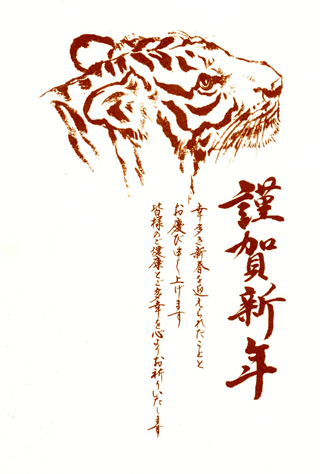 謹賀新年
幸多き新春を迎えられたことと
お慶び申し上げます
皆様のご健康とご多幸を心よりお祈りいたします